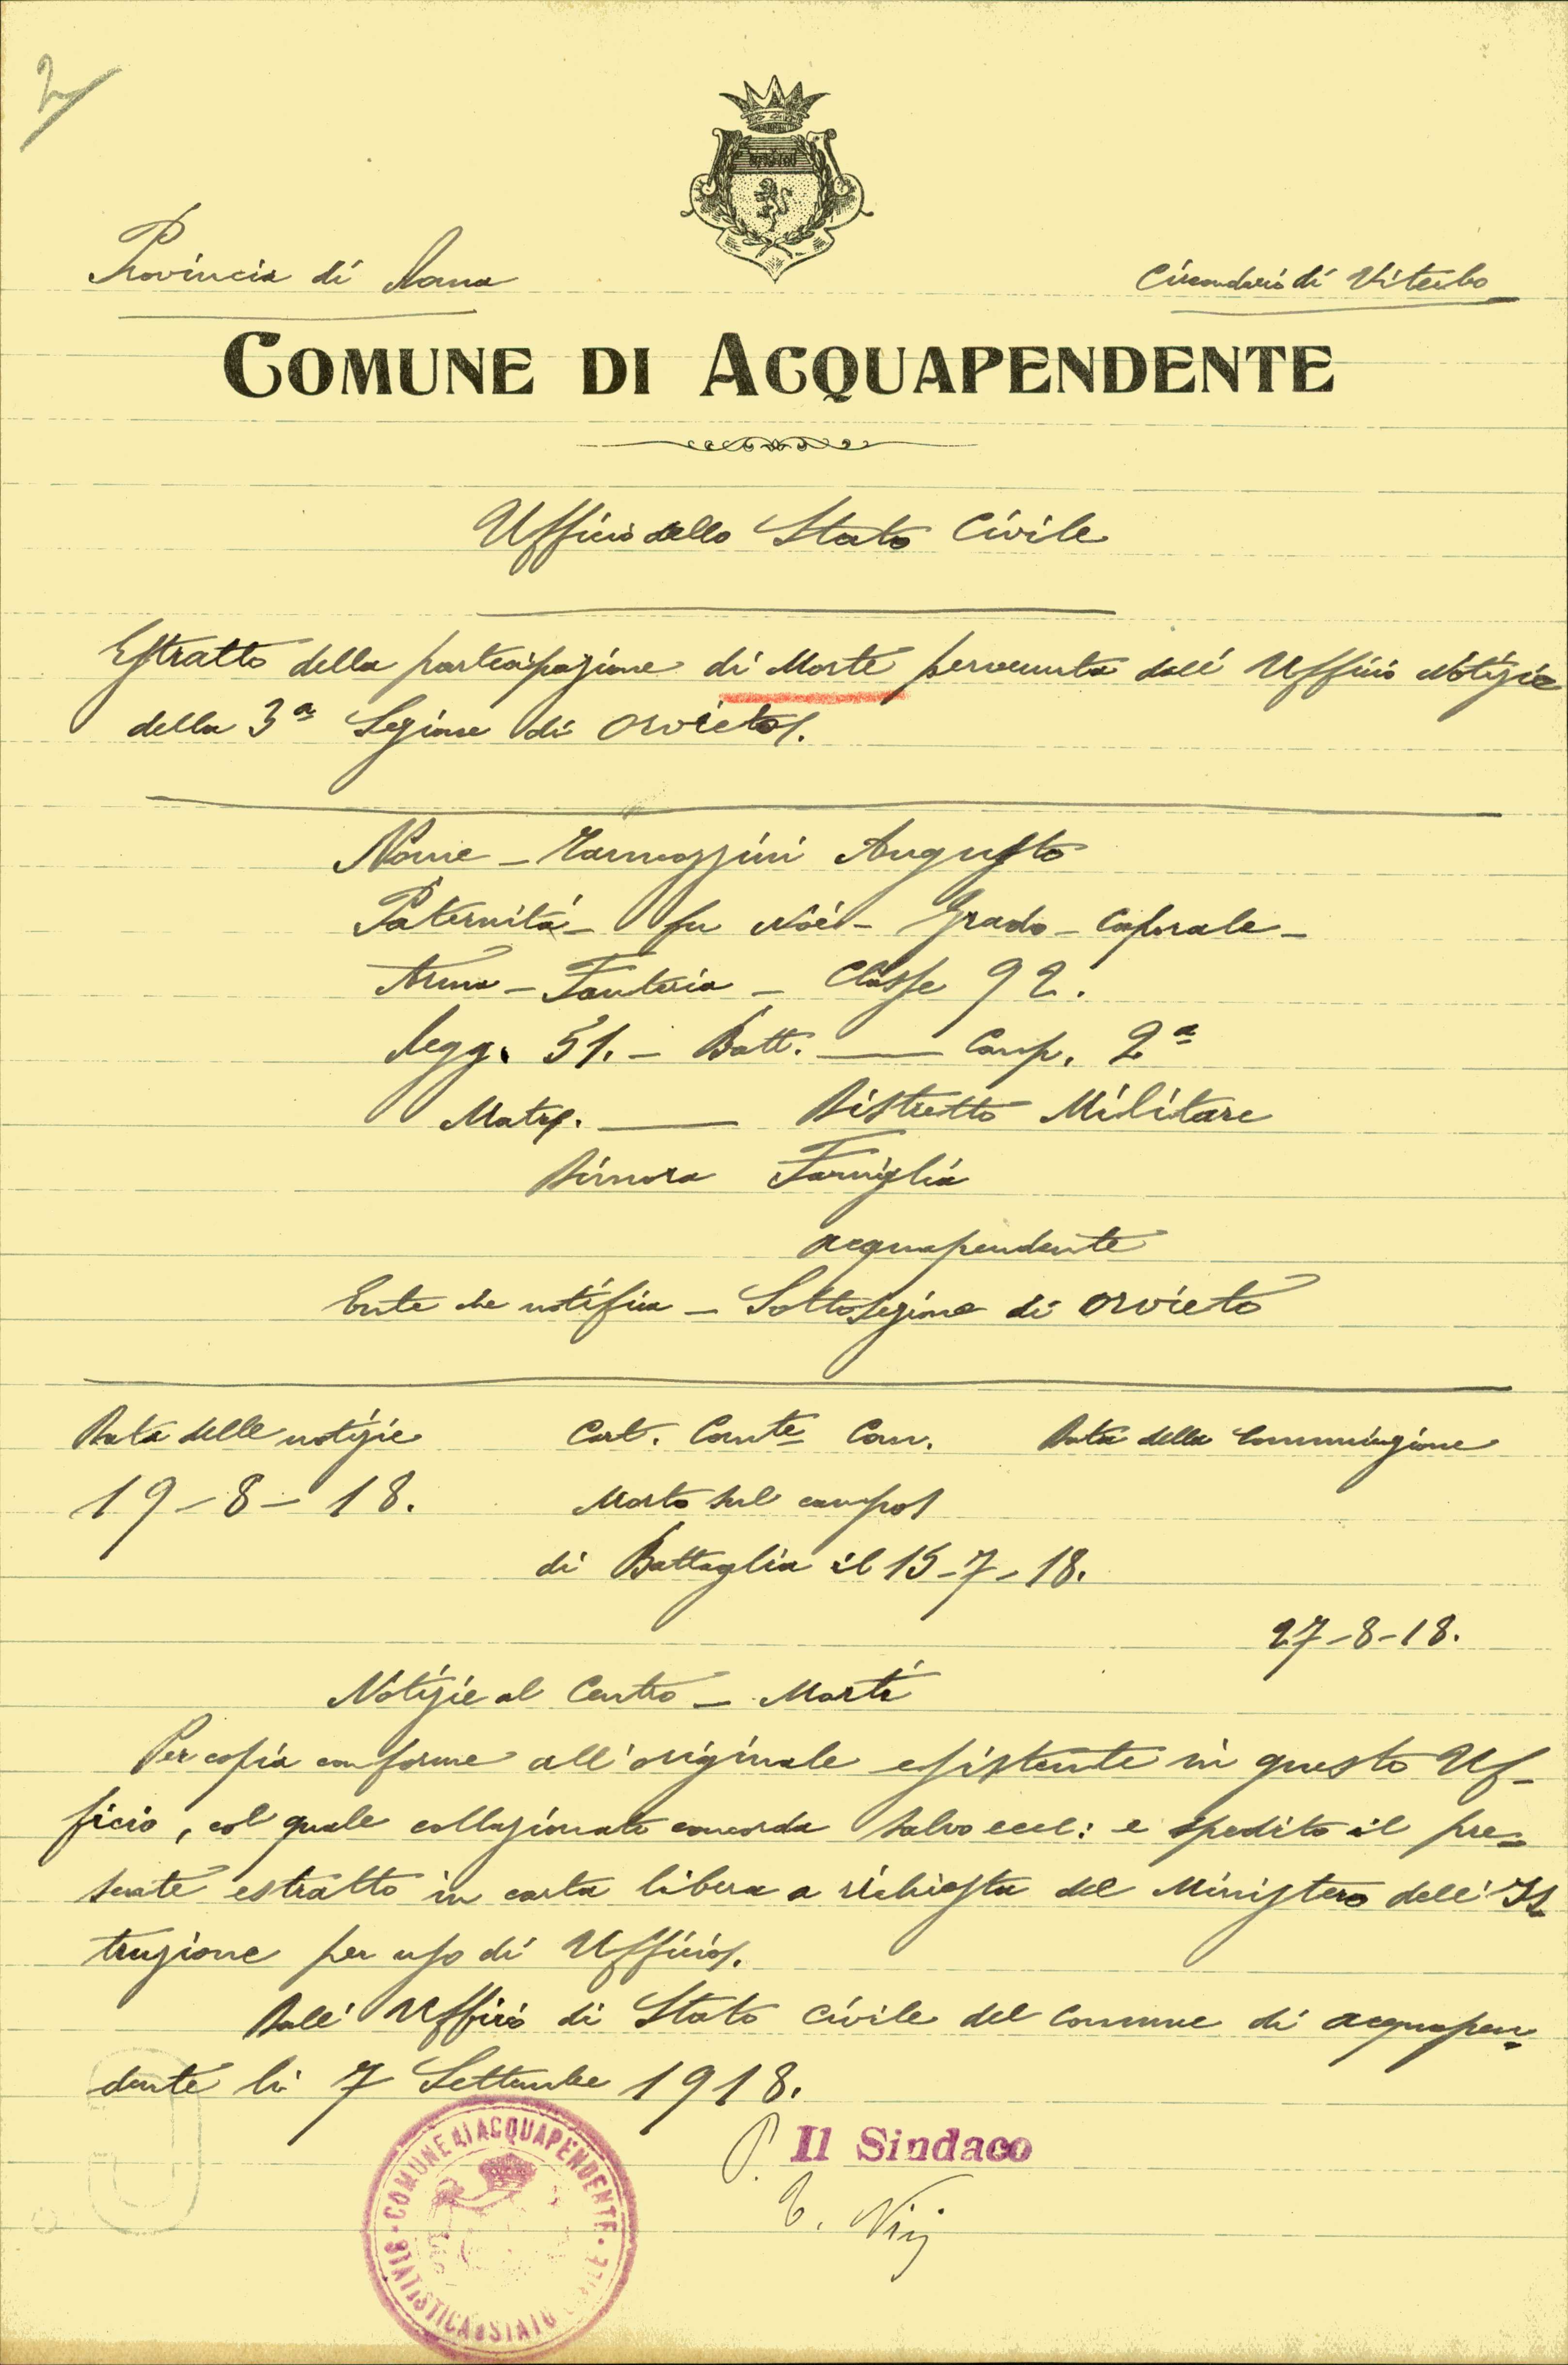 2
Provincia di Roma
Circondario di Viterbo
COMUNE DI ACQUAPENDENTE
Ufficio dello Stato Civile
Estratto della partecipazione di Morte pervenuta dall' Ufficio Notizie
della 3ª Sezione di Orvieto.
Nome - Augusto
Paternità - fu Noè - Grado - Caporale -
Arma - Fanteria - Classe 92.
Regg. 51. - Batt. — Comp. 2ª
Matr. — Distretto Militare
Dimora Famiglia
Acquapendente
Ente che notifica - Sottosezione di Orvieto
Data delle notizie Cart. Com. Data della Comunicazione
19-8-18. Morto sul campo
di Battaglia il 15-7-18.
27-8-18.
Notizie al Centro - Morti
Per copia conforme all'originale esistente in questo Uf-
ficio, col quale collazionato concorda salvo ecc: e spedito il pre=
sente estratto in carta libera a richiesta del Ministero dell' Is
truzione per uso di Ufficio.
Dall' Ufficio di Stato Civile del Comune di Acquapen=
dente li 7 Settembre 1918.
P. Il Sindaco
COMUNE DI ACQUAPENDENTE
STATISTICA E STATO CIVILE